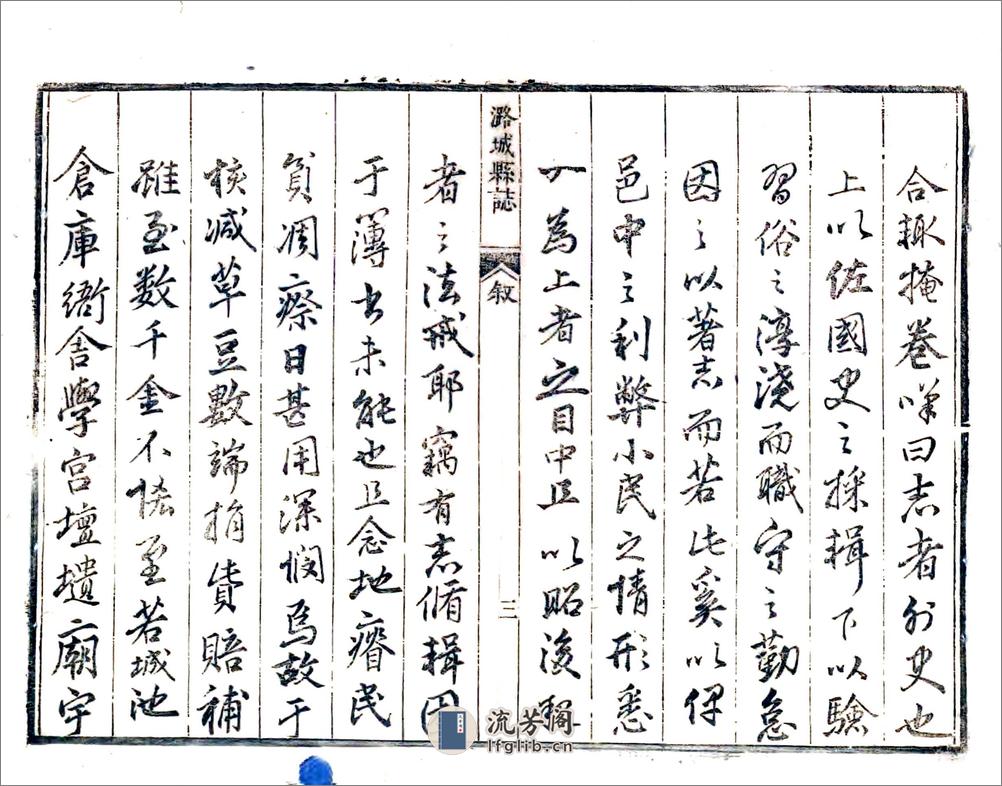 合輒掩卷嘆曰志者外史也
上以佐國史之採輯下以驗
習俗之淳澆而職守之勤怠
因之以著志而若此奚以俾
邑中之利弊小民之情形悉
入為上者之目中且以昭後
潞城縣誌
敘
三
者之法戒耶竊有志脩輯因
于簿書未能也且念地瘠民
貧凋瘵日甚用深憫焉故于
核減草豆數端捐貲賠補
雖至数千金不恡至若城池
倉庫衙舍學宮壇壝廟宇
流芳閣
lfglib.cn